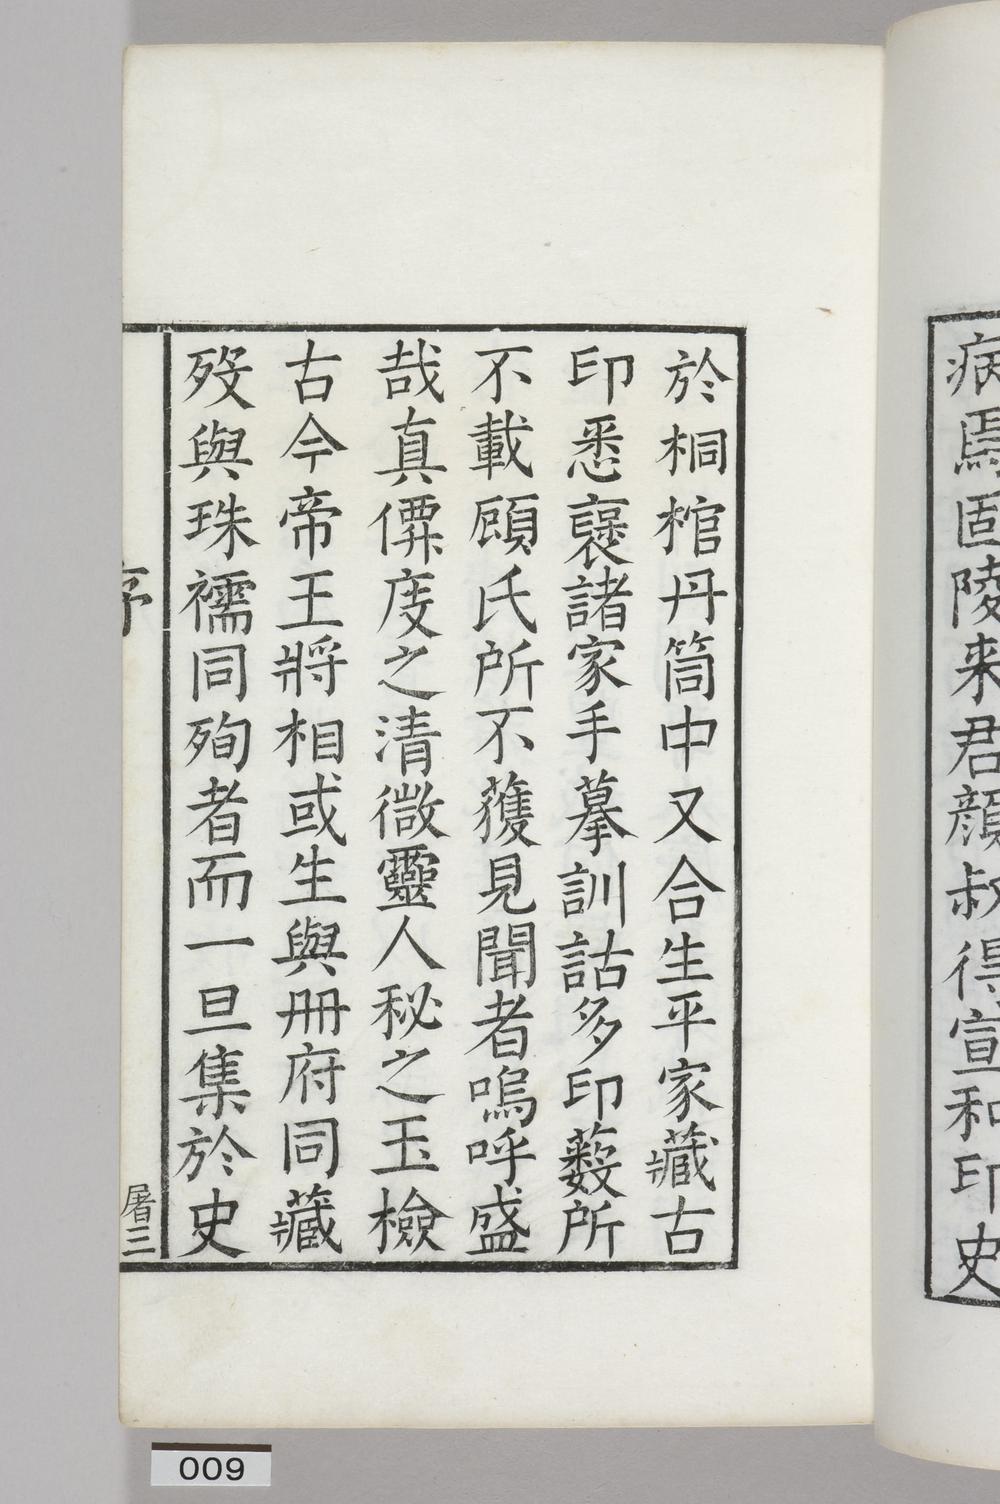 病焉固陵来君顔叔得宣和印史
於桐棺丹筒中又合生平家藏古
印悉裒諸家手摹訓詁多印藪所
不載顧氏所不獲見聞者嗚呼盛
哉真僊度之清微靈人秘之玉檢
古今帝王將相或生與册府同藏
歿與珠襦同殉者而一旦集於史
序
屠三
009